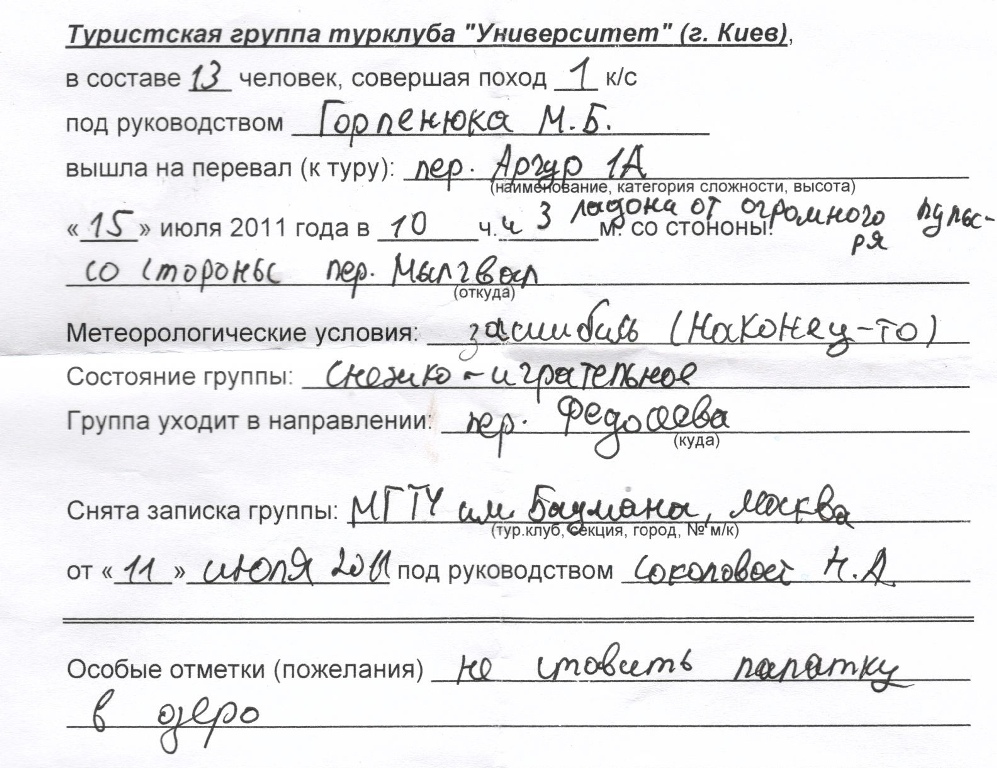 Туристская группа турклуба "Университет" (г. Киев),
в составе 13 человек, совершая поход 1 к/с
под руководством Горпенюка М.Б.
вышла на перевал (к туру): пер. Аргур 1А
(наименование, категория сложности, высота)
«15» июля 2011 года в 10 ч. и 3 ладона от огромного пульс-
ря
м. со стононы:
со стороны пер. Мылгвал
(откуда)
Метеорологические условия: зашибись (наконец-то)
Состояние группы: снежко-играетельное
Группа уходит в направлении: пер. Федосеева
(куда)
Снята записка группы: МГТУ им. Баумана, Москва
(тур.клуб, секция, город, № м/к)
от «11» июля 2011 под руководством Соколовой Н.А
Особые отметки (пожелания) не ставить палатку
в озеро